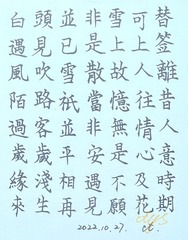 白頭並非雪可替
遇見已是上上簽
風吹雪散故人離
陌路衹當憶往昔
過客並非無情人
歲歲平安是心意
緣淺相遇不及時
來生再見願花期
2022.10.27.